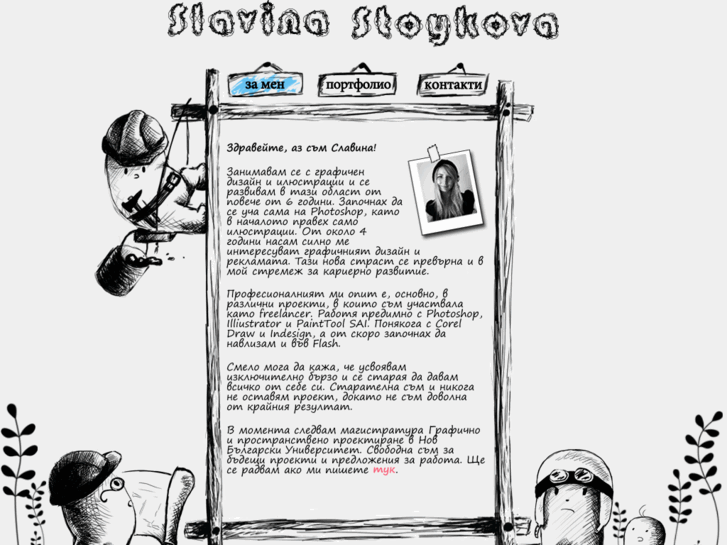 Slavina Stoykova
за мен
портфолио
контакти
Здравейте, аз съм Славина!
Занимавам се с графичен
дизайн и илюстрации и се
развивам в тази област от
повече от 6 години. Започнах да
се уча сама на Photoshop, като
в началото правех само
илюстрации. От около 4
години насам силно ме
интересуват графичният дизайн и
рекламата. Тази нова страст се превърна и в
мой стремеж за кариерно развитие.
Професионалният ми опит е, основно, в
различни проекти, в които съм участвала
като freelancer. Работя предимно с Photoshop,
Illiustrator и PaintTool SAI. Понякога с Corel
Draw и Indesign, а от скоро започнах да
навлизам и във Flash.
Смело мога да кажа, че усвоявам
изключително бързо и се старая да давам
всичко от себе си. Старателна съм и никога
не оставям проект, докато не съм доволна
от крайния резултат.
В момента следвам магистратура Графично
и пространствено проектиране в Нов
Български Университет. Свободна съм за
бъдещи проекти и предложения за работа. Ще
се радвам ако ми пишете тук.